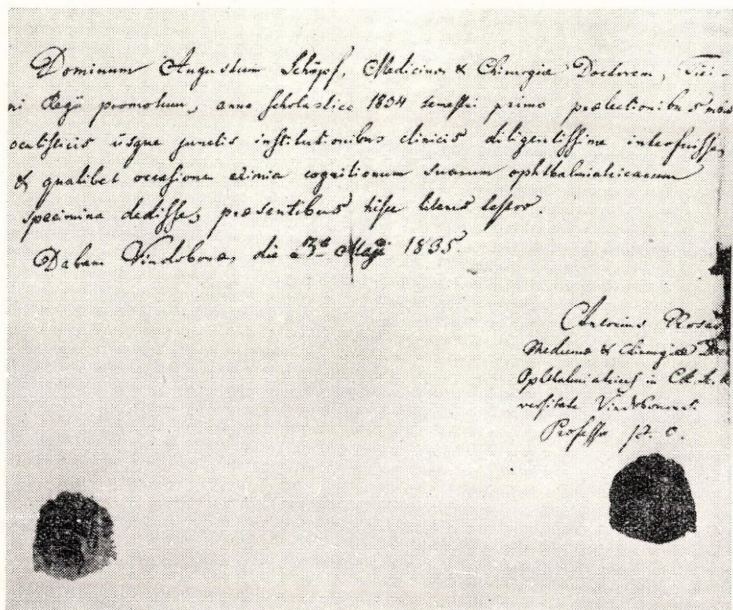 Dominum Augustum Schöpf, Medicinæ & Chirurgiæ Doctorem, Tici-
ni Regii promotum, anno scholastico 1834 semestri primo prælectionibus meis
ocultisticis usque junctis institutionibus clinicis diligentissime interfuisse,
& qualibet occasione eximia cognitionum suarum ophthalmiatricarum
specimina dedisse, præsentibus hisce literis testor.
Dabam Vindobonæ, die 3e Maji 1835.
Antonius Rosas
Medicinæ & Chirurgiæ Doc
Ophthalmiatrices in
versitate Vindobonensi
Professor p. o.